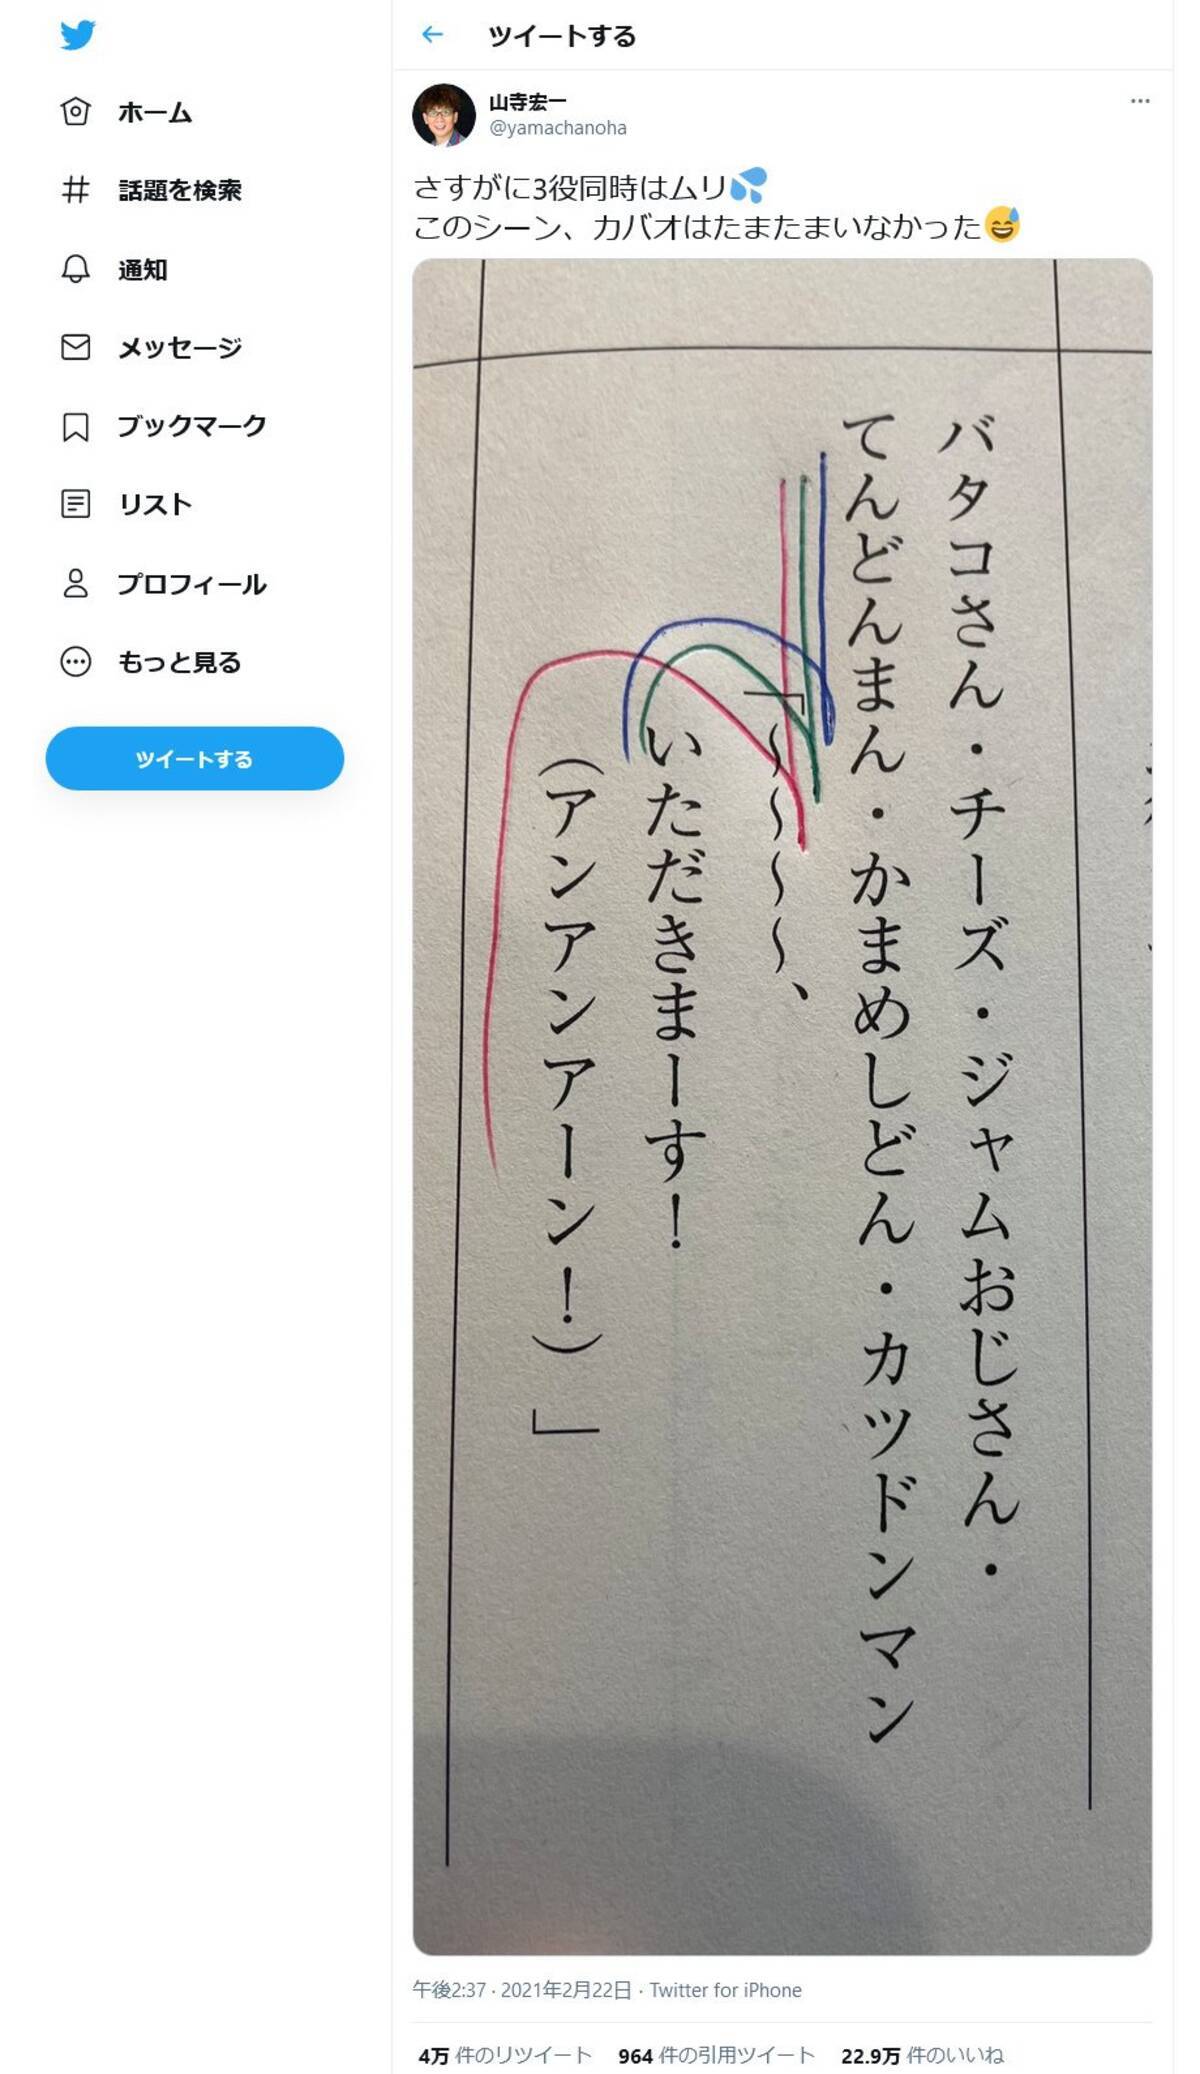 ホーム
話題を検索
通知
メッセージ
ブックマーク
リスト
プロフィール
もっと見る
ツイートする
ツイートする
山寺宏一
@yamachanoha
さすがに3役同時はムリ💦
このシーン、カバオはたまたまいなかった😅
バタコさん・チーズ・ジャムおじさん・
てんどんまん・かまめしどん・カツドンマン
「~~~~、
いただきまーす!
(アンアンアーン!)」
午後2:37 · 2021年2月22日 · Twitter for iPhone
4万 件のリツイート 964 件の引用ツイート 22.9万 件のいいね